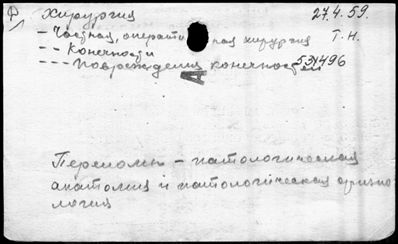 Ф, Хирургия 27.4.59.
- Частная, оперативная хирургия Т.Н.
-- Конечности
--- Повреждения конечностей 531496
А
Переломы - патологическая
анатомия и патологическая физио
логия